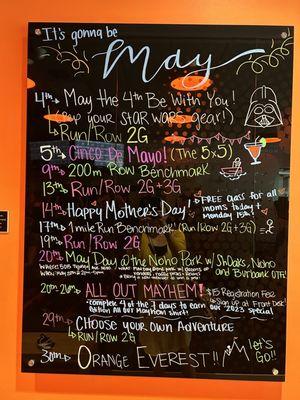 It's gonna be
May
4th → May the 4th Be With You!
(Rep your STAR WARS gear!)
Run/Row 2G
5th → Cinco De Mayo! (The 5x5)
9th → 200m Row Benchmark
13th → Run/Row 2G + 3G
14th → Happy Mother's Day!
FREE class for all
moms today &
Monday 15th!
17th → 1 mile Run Benchmark (Run/Row 2G + 3G)
19th → Run/Row 2G
20th → May Day @ the NoHo Park w/ ShOaks, NoHo
and Burbank OTF!
20th-26th → ALL OUT MAYHEM!
$15 Registration Fee
Sign up at Front Desk!
-complete 4 of the 7 days to earn our 2023 special
edition All Out Mayhem shirt!
29th → Choose your Own Adventure
Run/Row 2G
30th → Orange Everest!!
Let's
Go!!